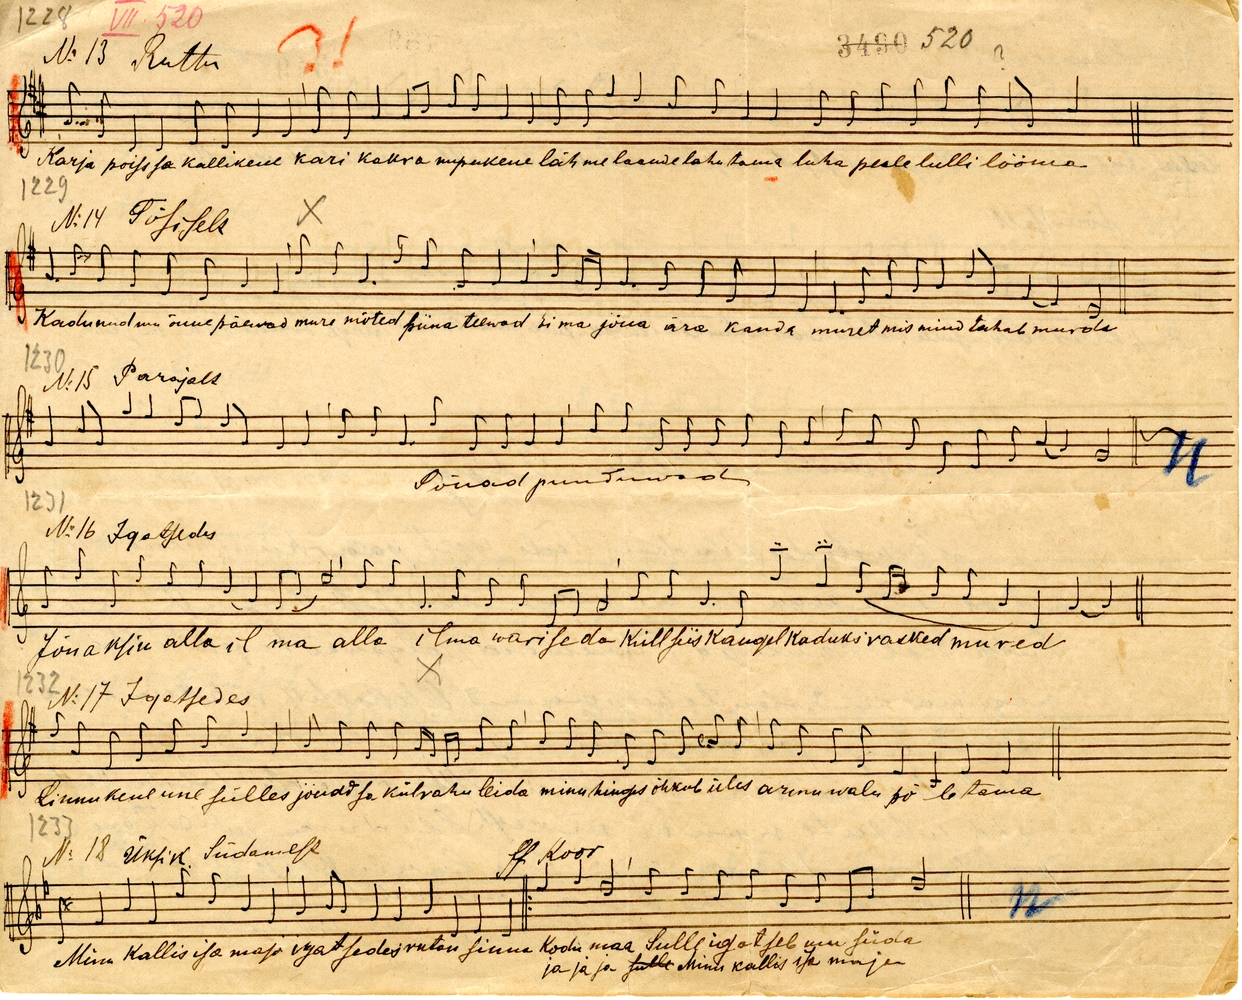 1228 VII 520
№ 13 Ruttu ?! 3490 520 ?
Karja poissa kallikene kari kakra nupukene lähme laande lahutama luha peale lulli lööma
1229
№ 14 Tõsiselt X
Kadunud mu õnne päewad mure mõted piina teewad ei ma jõua ära kanda muret mis mind tahab murda
1230
№ 15 Parajalt
Põuad punduwad
1231
№ 16 Igatsedes
Jõua ksin alla il ma alla ilma wariseda Küll siis kaugel kaduks rasked mured
X
1232
№ 17 Igatsedes
Linnukene une sülles jõudsa külrahu leida minu hinges õhkub üles armu walu põletama
1233
№ 18 Üksik. Südamest ff Koor
Minu kallis isa maja igatsedes rutan sinna Kodu maa Sulle igatseb mu süda
ja ja ja sulle Minu kallis isa maja